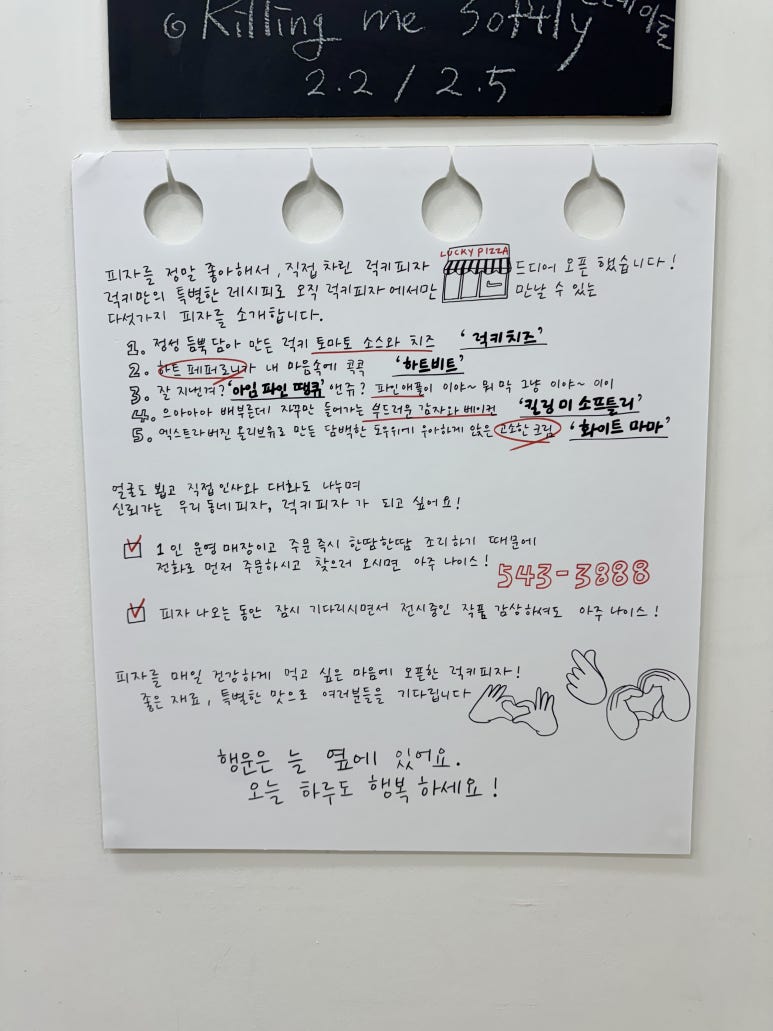 Killing me Softly
2.2 / 2.5
피자를 정말 좋아해서, 직접 차린 럭키피자 LUCKY PIZZA 드디어 오픈 했습니다!
럭키만의 특별한 레시피로 오직 럭키피자에서만 만날 수 있는
다섯가지 피자를 소개합니다.
1. 정성 듬뿍 담아 만든 럭키 토마토 소스와 치즈 '럭키치즈'
2. 하트 페퍼로니가 내 마음속에 콕콕 '하트비트'
3. 잘 지낸겨? '아임 파인 땡큐' 앤쥬? 파인애플이 이야~ 뭐 막 그냥 이야~ 이이
4. 으아아아 배부른데 자꾸만 들어가는 부드러운 감자와 베이컨 '킬링 미 소프틀리'
5. 엑스트라버진 올리브유로 만든 담백한 도우위에 우아하게 앉은 고소한 크림 '화이트 마마'
얼굴도 뵙고 직접 인사와 대화도 나누며
신뢰가는 우리동네피자, 럭키피자가 되고 싶어요!
1인 운영 매장이고 주문 즉시 한땀한땀 조리하기 때문에
전화로 먼저 주문하시고 찾으러 오시면 아주 나이스!
543-3888
피자 나오는 동안 잠시 기다리시면서 전시중인 작품 감상하셔도 아주 나이스!
피자를 매일 건강하게 먹고 싶은 마음에 오픈한 럭키피자!
좋은 재료, 특별한 맛으로 여러분들을 기다립니다
행운은 늘 옆에 있어요.
오늘 하루도 행복하세요!